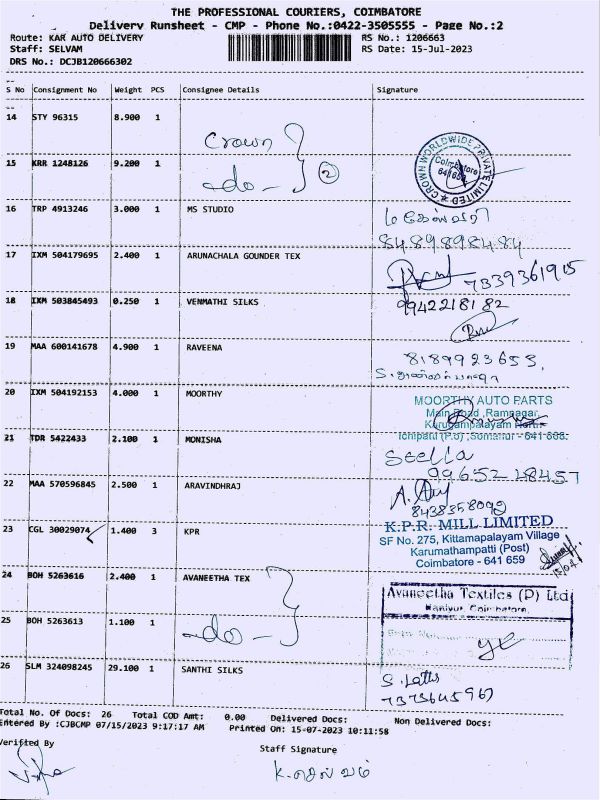 THE PROFESSIONAL COURIERS, COIMBATORE
Delivery Runsheet - CMP - Phone No.:0422-3505555 - Page No.:2
Route: KAR AUTO DELIVERY RS No.: 1206663
Staff: SELVAM RS Date: 15-Jul-2023
DRS No.: DCJB120666302
S No Consignment No Weight PCS Consignee Details Signature
14 STY 96315 8.900 1 Crown
15 KRR 1248126 9.200 1 -do- 2
CROWN WORLDWIDE PRIVATE LIMITED
Coimbatore
16 TRP 4913246 3.000 1 MS STUDIO
8489898484
17 IXM 504179695 2.400 1 ARUNACHALA GOUNDER TEX
7339361915
18 IXM 503845493 0.250 1 VENMATHI SILKS 9942218182
19 MAA 600141678 4.900 1 RAVEENA 8189923653
20 IXM 504192153 4.000 1 MOORTHY MOORTHY AUTO PARTS
Main Road, Ramnagar,
Karugampalayam North
Ichipatti (P.o), Somanur - 641 668.
21 TDR 5422433 2.100 1 MONISHA
22 MAA 570596845 2.500 1 ARAVINDHRAJ
8438358092
23 CGL 30029074 1.400 3 KPR K.P.R. MILL LIMITED
SF No. 275, Kittamapalayam Village
Karumathampatti (Post)
Coimbatore - 641 659
24 BOH 5263616 2.400 1 AVANEETHA TEX Avaneetha Textiles (P) Ltd
Kaniyur, Coimbatore.
25 BOH 5263613 1.100 1 -do-
26 SLM 324098245 29.100 1 SANTHI SILKS
7373645967
Total No. Of Docs: 26 Total COD Amt: 0.00 Delivered Docs: Non Delivered Docs:
Entered By :CJBCMP 07/15/2023 9:17:17 AM Printed On: 15-07-2023 10:11:58
Verified By Staff Signature
K. செல்வம்